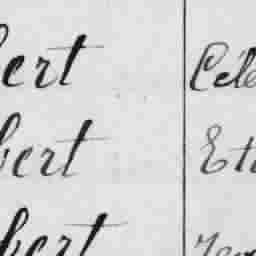 bert Céle
bert Et
bert